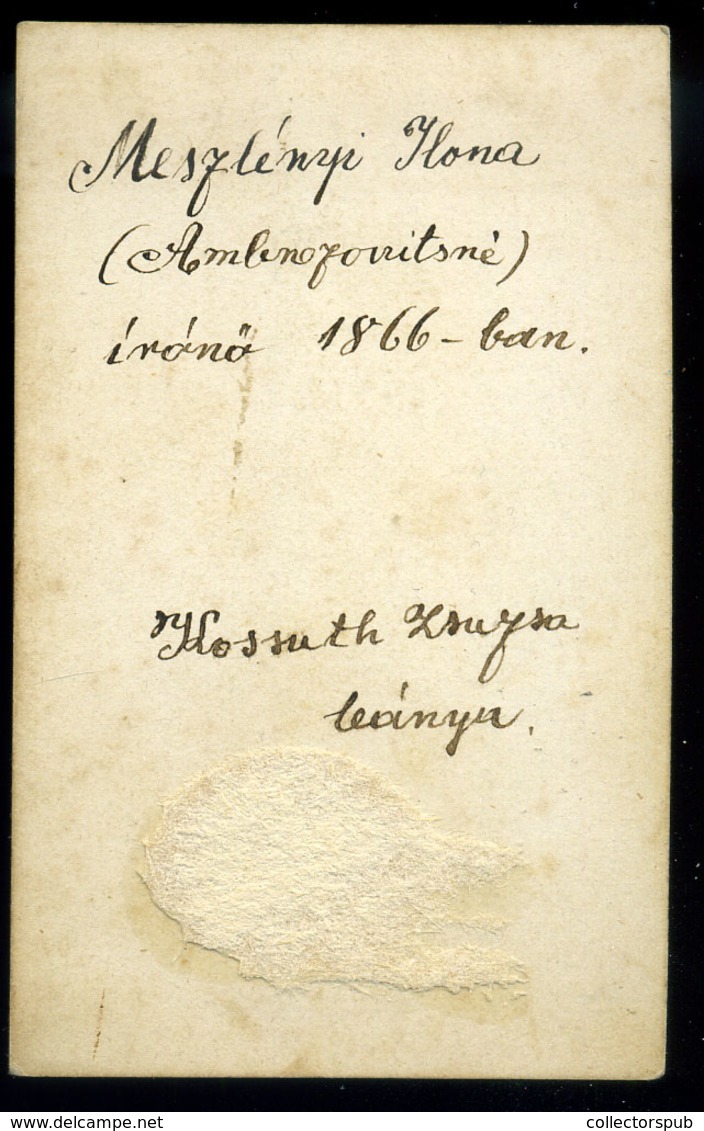 Meszlényi Ilona
(Ambrozovitsné)
írónő 1866-ban.
Kossuth Zsuzsa
leánya.
collectorspub